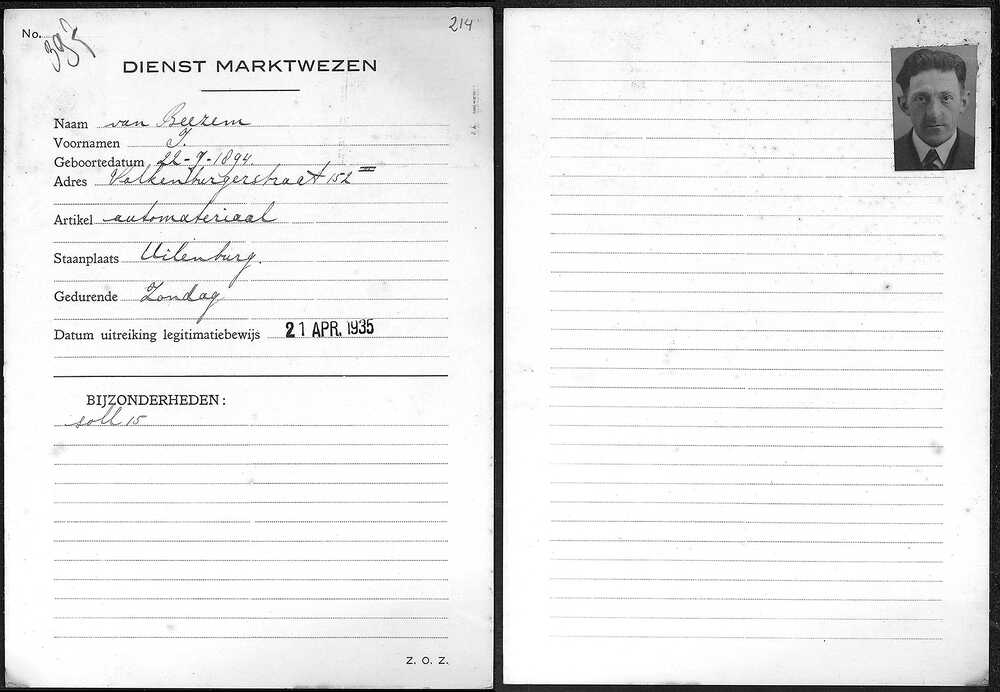 214
No. 397
DIENST MARKTWEZEN
Naam van Beezem
Voornamen J.
Geboortedatum 22-7-1894.
Adres Valkenburgerstraat 152 III
Artikel automateriaal
Staanplaats Uilenburg.
Gedurende Zondag
Datum uitreiking legitimatiebewijs 21 APR. 1935
BIJZONDERHEDEN:
soll 15
Z. O. Z.